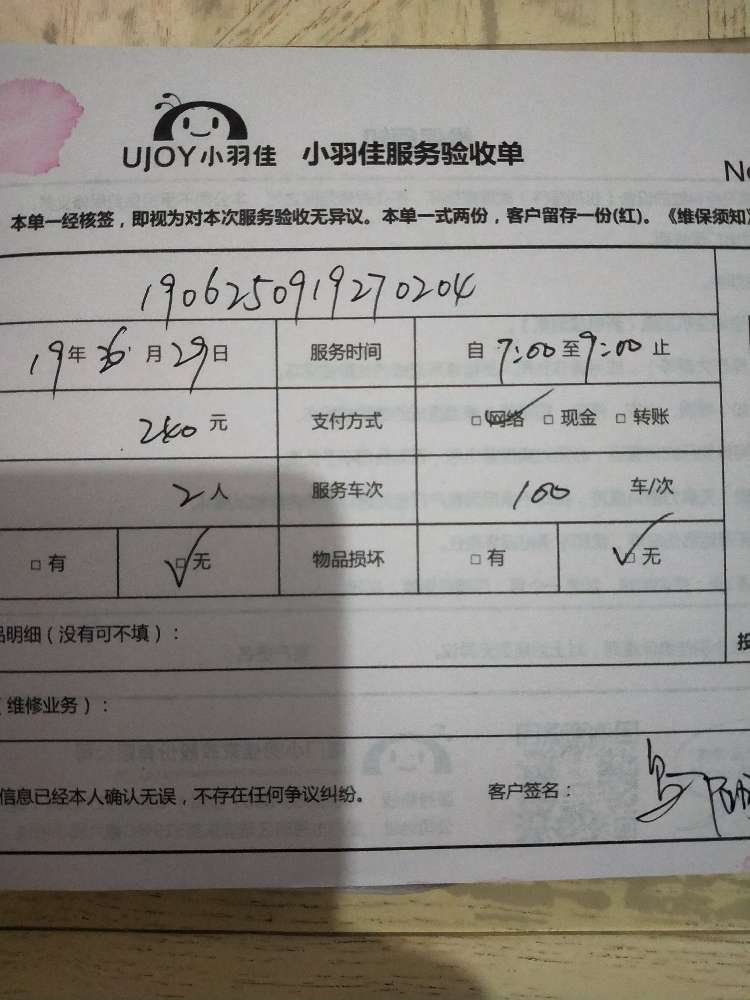 UJOY小羽佳 小羽佳服务验收单
No
本单一经核签，即视为对本次服务验收无异议。本单一式两份，客户留存一份(红)。《维保须知》
1906250919270204
19年 6月29日 服务时间 自 7:00至9:00止
240元 支付方式 □网络 □现金 □转账
2人 服务车次 100 车/次
□有 □无 物品损坏 □有 □无
品明细（没有可不填）：
（维修业务）：
信息已经本人确认无误，不存在任何争议纠纷。 客户签名：